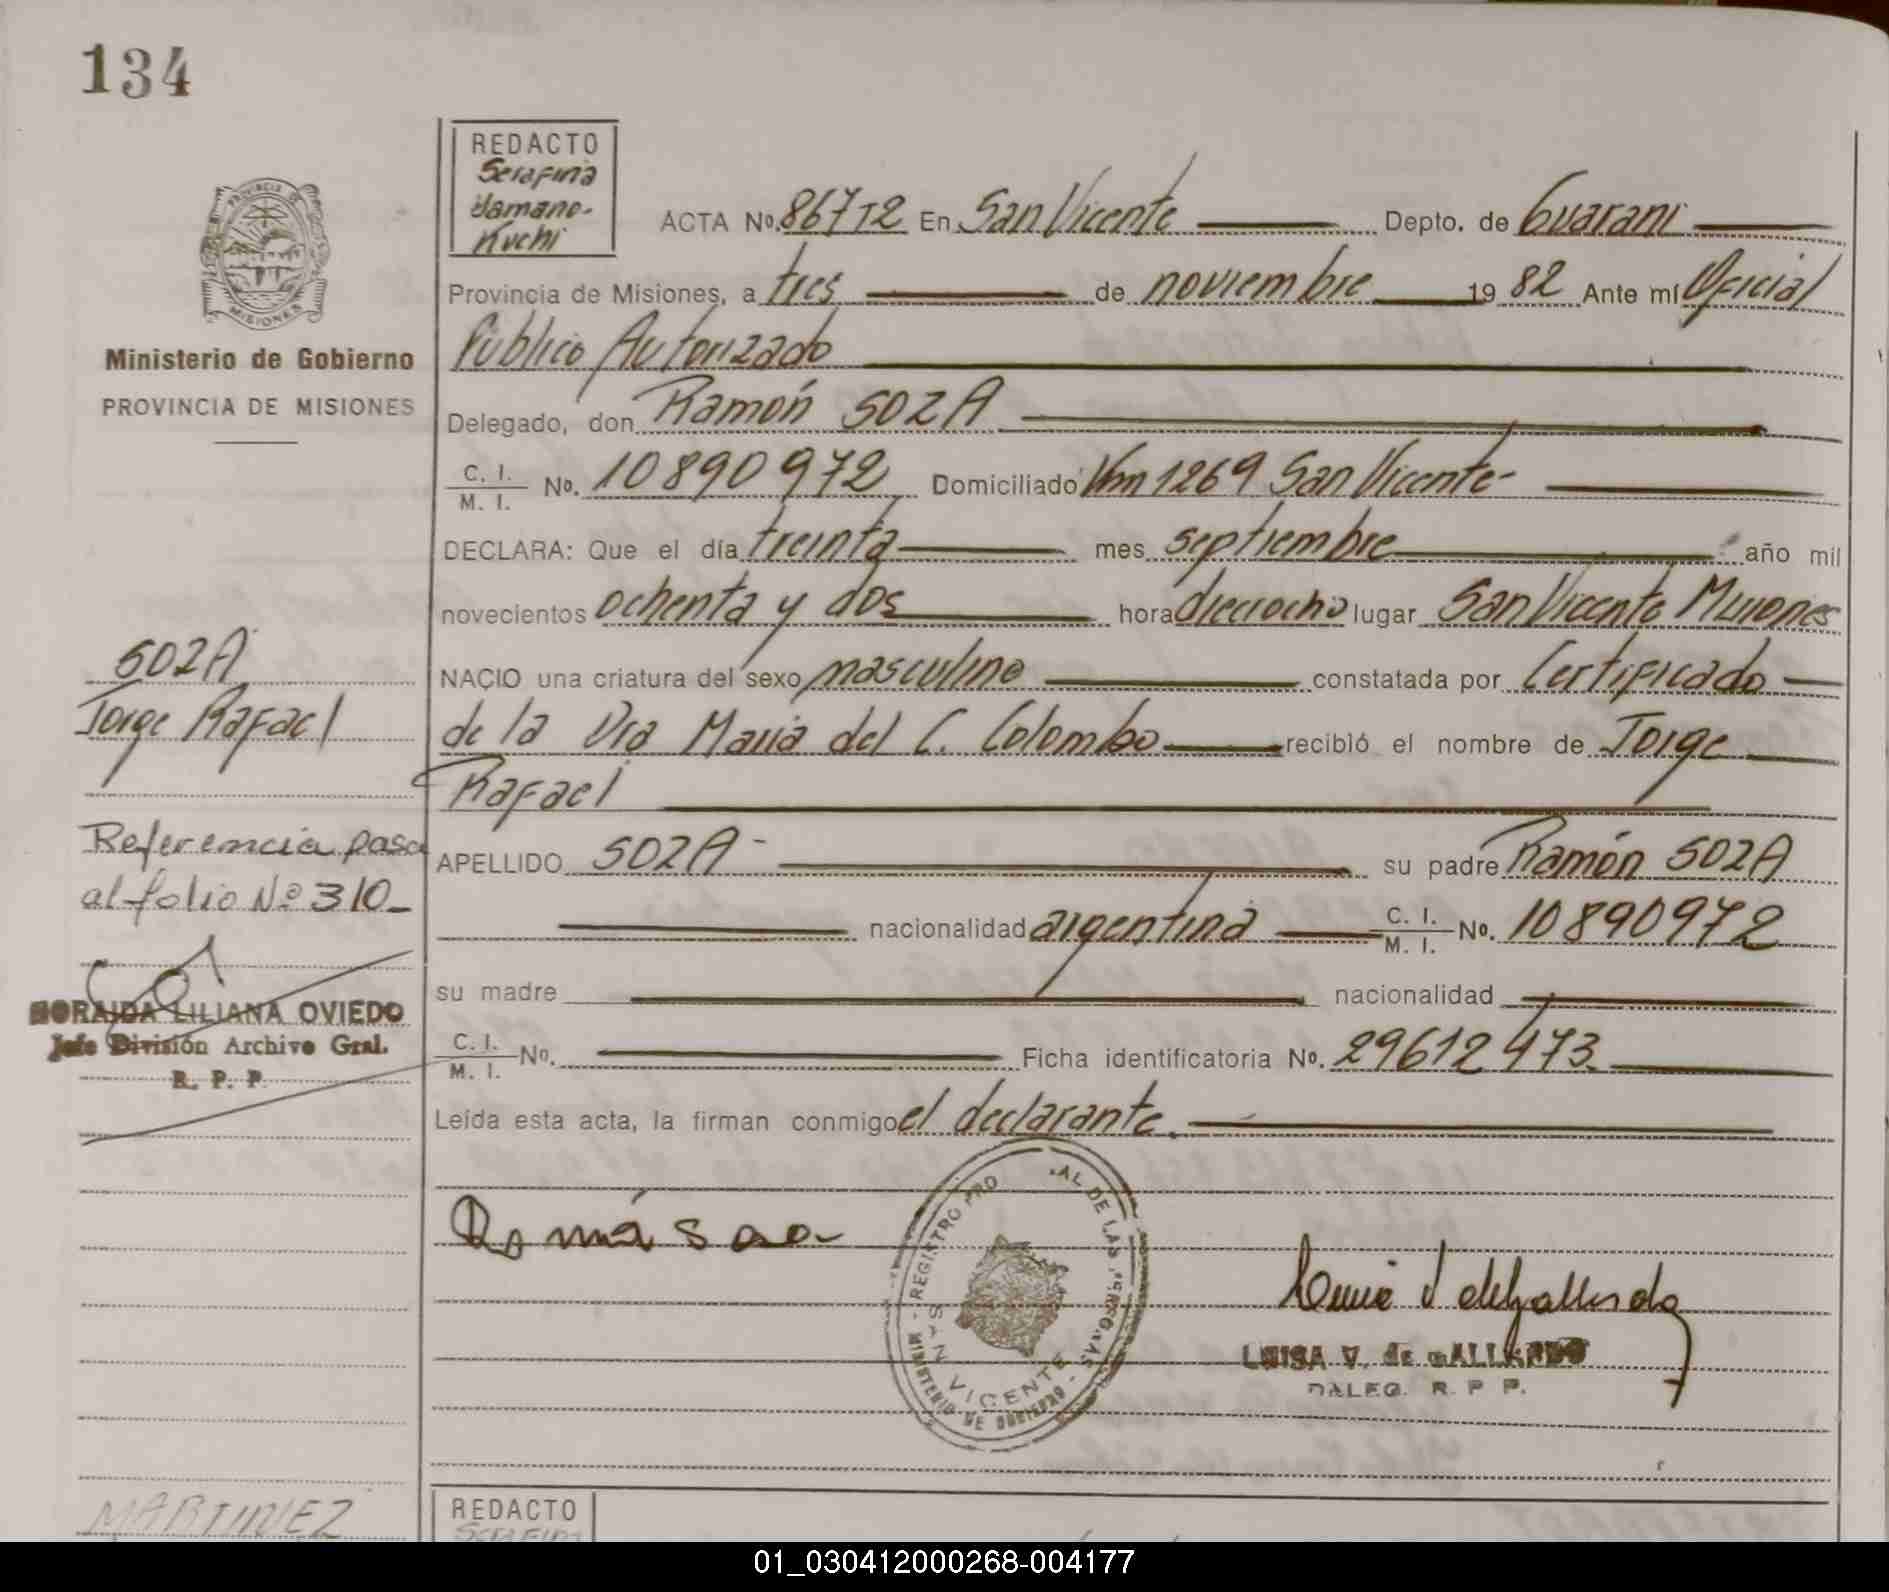 134
REDACTO
Serafina
Kuchi
ACTA No. 867T2 En San Vicente Depto. de Guarani
PROVINCIA DE
MISIONES
Provincia de Misiones, a tres de noviembre 19 82 Ante mí Oficial
Ministerio de Gobierno
Público Autorizado
PROVINCIA DE MISIONES
Delegado, don Ramón SOZA
C. I.
M. I. No. 10890972 Domiciliado Km 1269 San Vicente-
DECLARA: Que el día treinta mes septiembre año mil
novecientos ochenta y dos hora dieciocho lugar San Vicente Misiones
SOZA
NACIO una criatura del sexo masculino constatada por Certificado
Jorge Rafael
de la Dra Maria del C. Colombo recibió el nombre de Jorge
Rafael
Referencia pasa
al folio Nº 310-
APELLIDO SOZA- su padre Ramón SOZA
nacionalidad argentina C. I.
M. I. No. 10890972
su madre nacionalidad
ZORAIDA LILIANA OVIEDO
Jefe División Archivo Gral.
R. P. P
C. I.
M. I. No. Ficha identificatoria No. 29612473.
Leída esta acta, la firman conmigo el declarante.
REGISTRO PRO AL DE LAS PERSONAS
MINISTERIO DE GOBIERNO
SAN VICENTE
LUISA V. de GALLARDO
DALEG. R. P P.
MARTINEZ
REDACTO
01_030412000268-004177